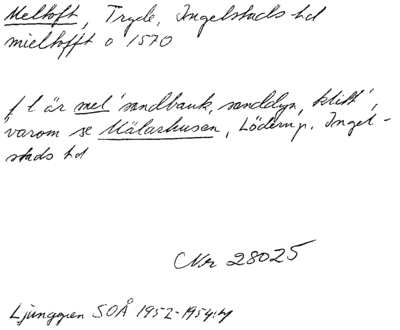 Meltoft, Tryde, Ingelstads hd
mieltofft o 1570
f l är mel 'sandbank, sanddyn, klitt',
varom se Mälarhusen, Löderup. Ingel-
stads hd
Nr 28025
Ljunggren SOÅ 1952-1954:4